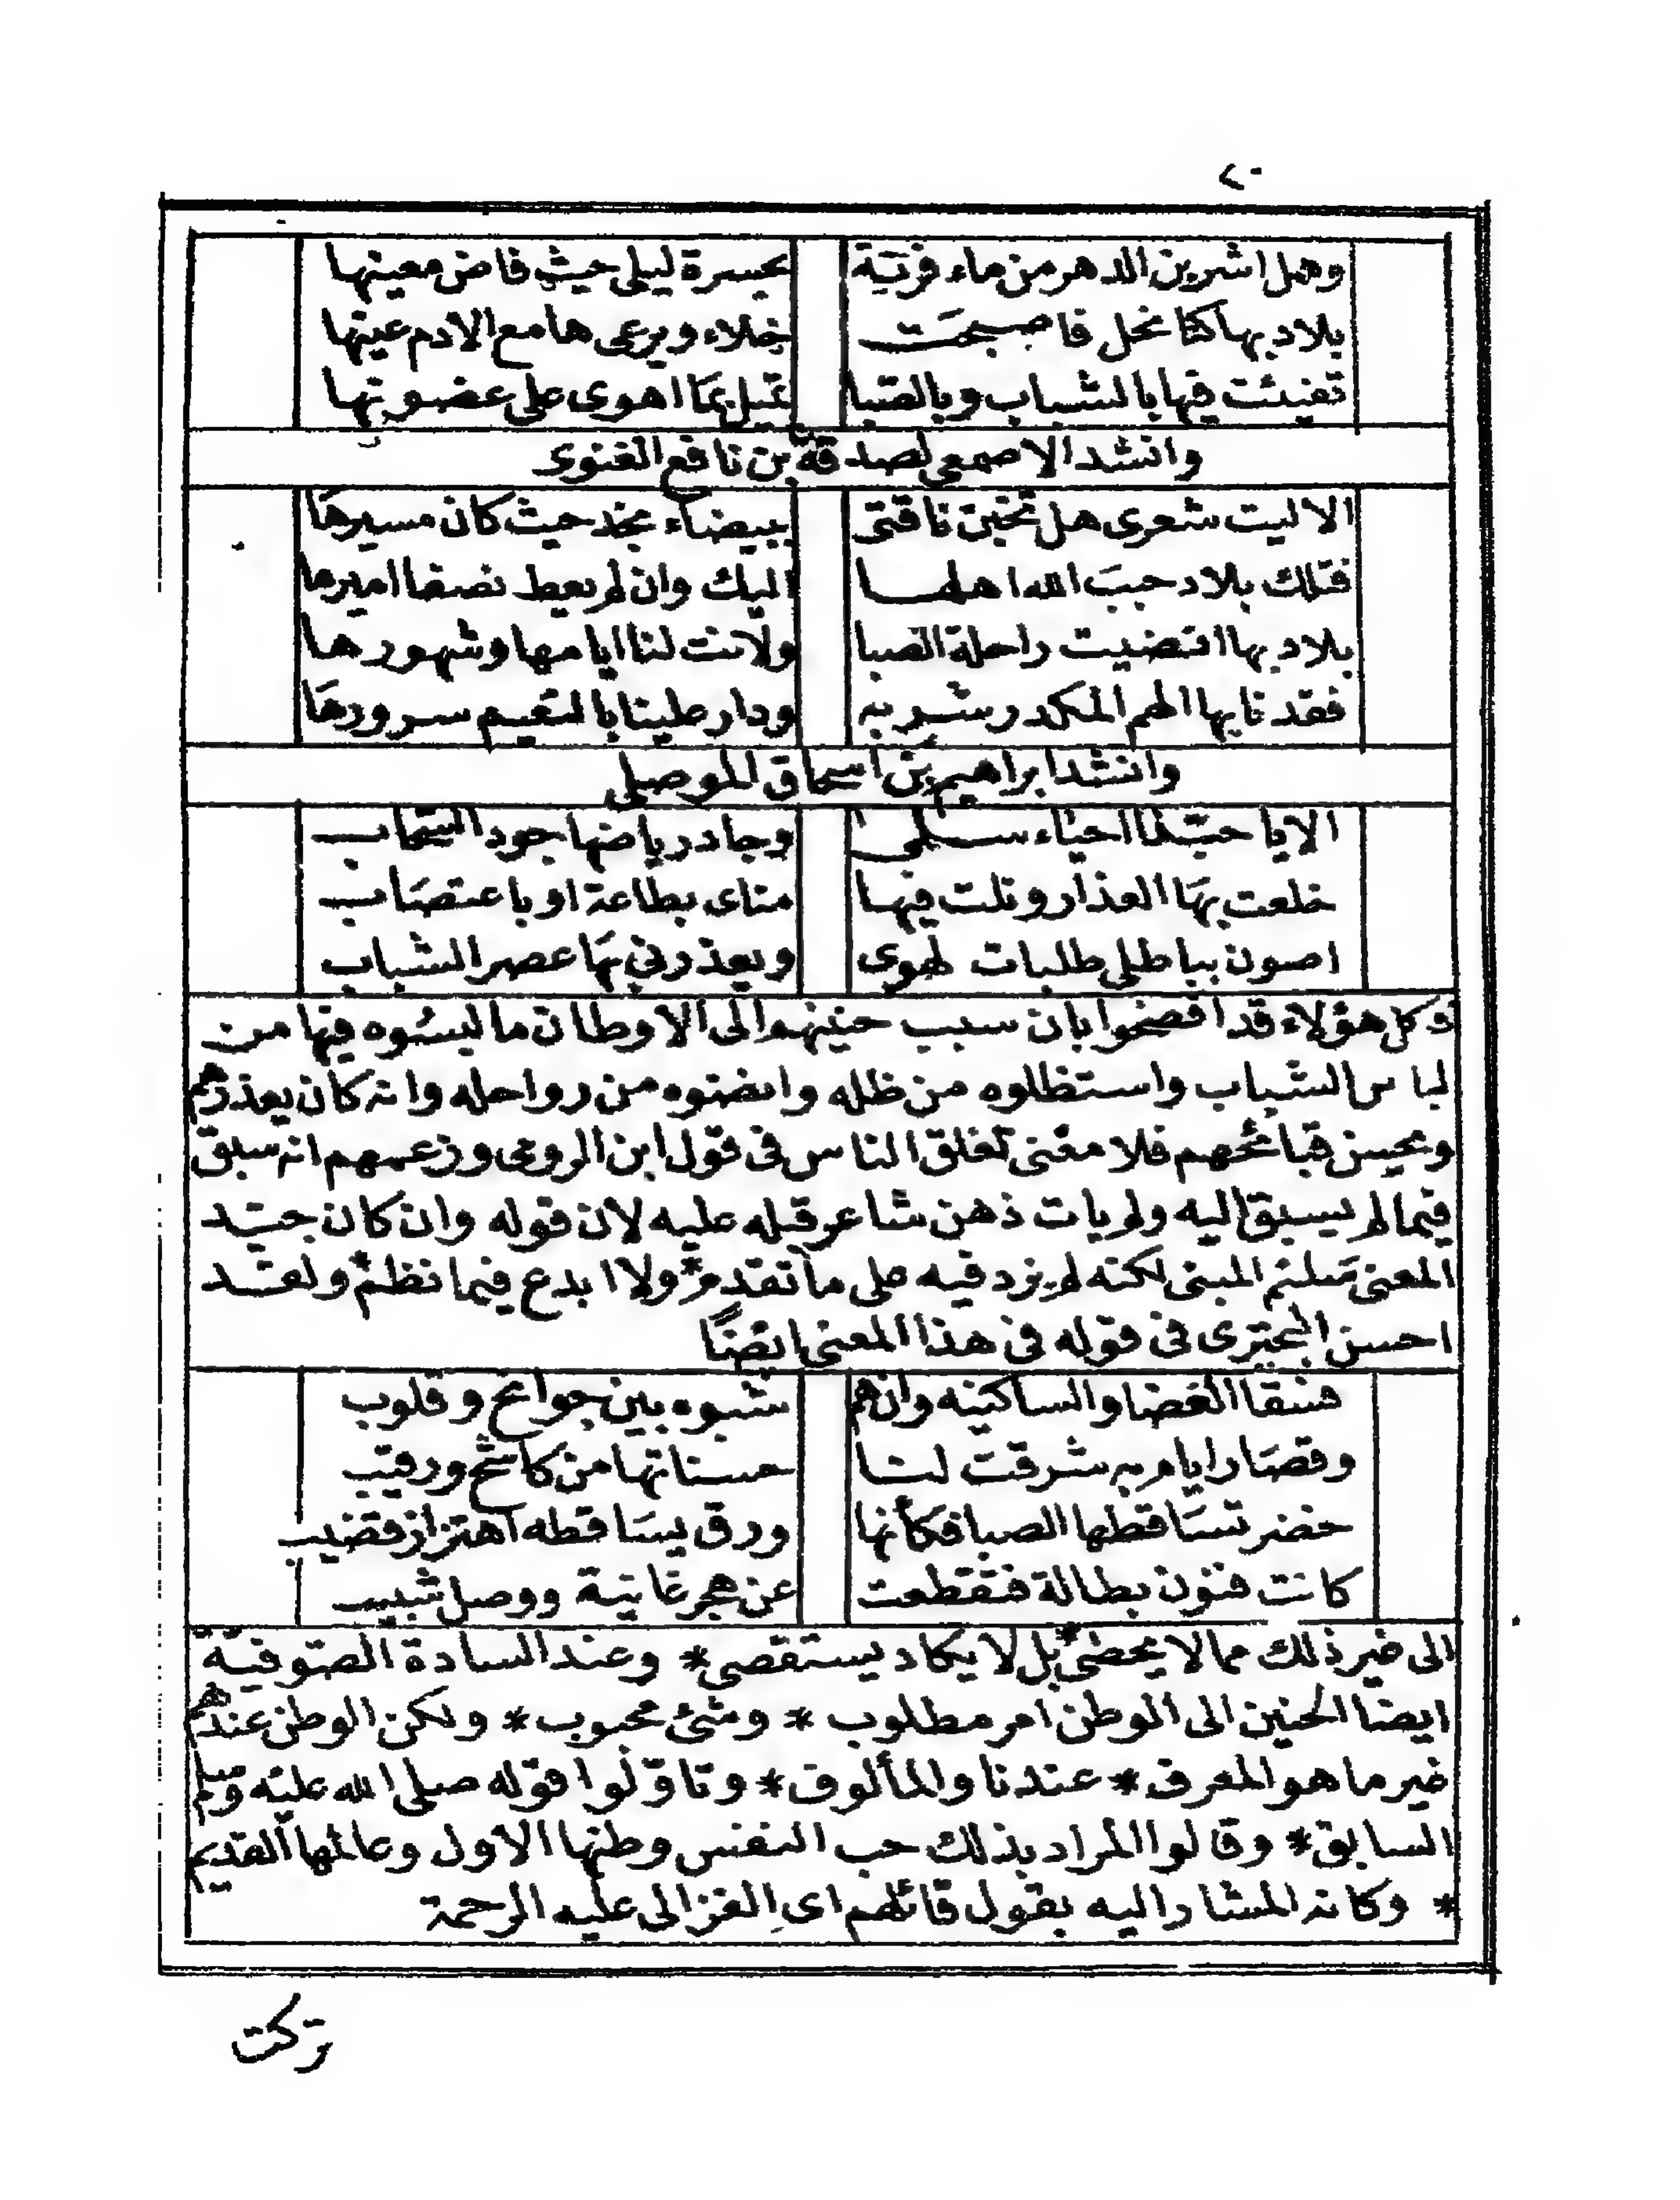 ٢٠
وهل اشربن الدهر من ماء قريّة بحسرة ليلى حيث فاض معينها
بلاد بها كنا نحل فاصبحت خلاء ويرعى ها مع الادم عينها
تفيئت فيها بالشباب وبالصّبا تميل بما اهوى على غضونها
وانشد الاصمعي لصدقة بن نافع الغنوى
الا ليت شعرى هل تحنن ناقتى ببيضاء نجد حيث كان مسيرها
فتلك بلاد حبب الله اهلها اليك وان لم يعط نصفا اميرها
بلاد بها انتضيت راحلة الصبا ولانت لنا ايامها وشهورها
فقد نا بها الهم المكدر شربه ودار علينا بالنعيم سرورها
وانشد ابراهيم بن اسحاق الموصلى
الا يا حبّذا احياء سلمى وجاد رياضها جود السّحاب
خلعت بها العذار ونلت فيها مناى بطاعة او باعتصاب
اصون بباطلى طلبات لهوى ويعذرنى بها عصر الشباب
وكل هؤلاء قد افصحوا بان سبب حنينهم الى الاوطان ما لبسوه فيها من
لباس الشباب واستظلوه من ظله وانضوه من رواحله وانه كان يعذرهم
ويحسن قبائحهم فلا معنى لغلق الناس فى قول ابن الرومى وزعمهم انه سبق
فيما لم يسبق اليه ولم يات ذهن شاعر قبله عليه لان قوله وان كان جيّد
المعنى سليم المبنى لكنه لم يزد فيه على ما تقدم * ولا ابدع فيما نظم * ولقد
احسن البحترى فى قوله فى هذا المعنى ايضًا
فسقا الغضا والساكنيه وان هم شبوه بين جوانح وقلوب
وقصار ايام به شرقت لنا حسناتها من كاشح ورقيب
خضر تساقطها الصبا فكأنها ورق يساقطه اهتزاز قضيب
كانت فنون بطالة فتقطعت عن هجر غانية ووصل شبيب
الى غير ذلك مما لا يحصى * بل لا يكاد يستقصى * وعند السادة الصّوفيّة
ايضا الحنين الى الوطن امر مطلوب * وشئ محبوب * ولكن الوطن عندهم
غير ما هو المعرف * عندنا والمألوق * وتاوّلوا قوله صلى الله عليه وسلم
السابق * وقالوا المراد بذلك حب النفس وطنها الاول وعالمها القديم
* وكانه المشار اليه بقول قائلهم اى الغزالى عليه الرحمة
تركت